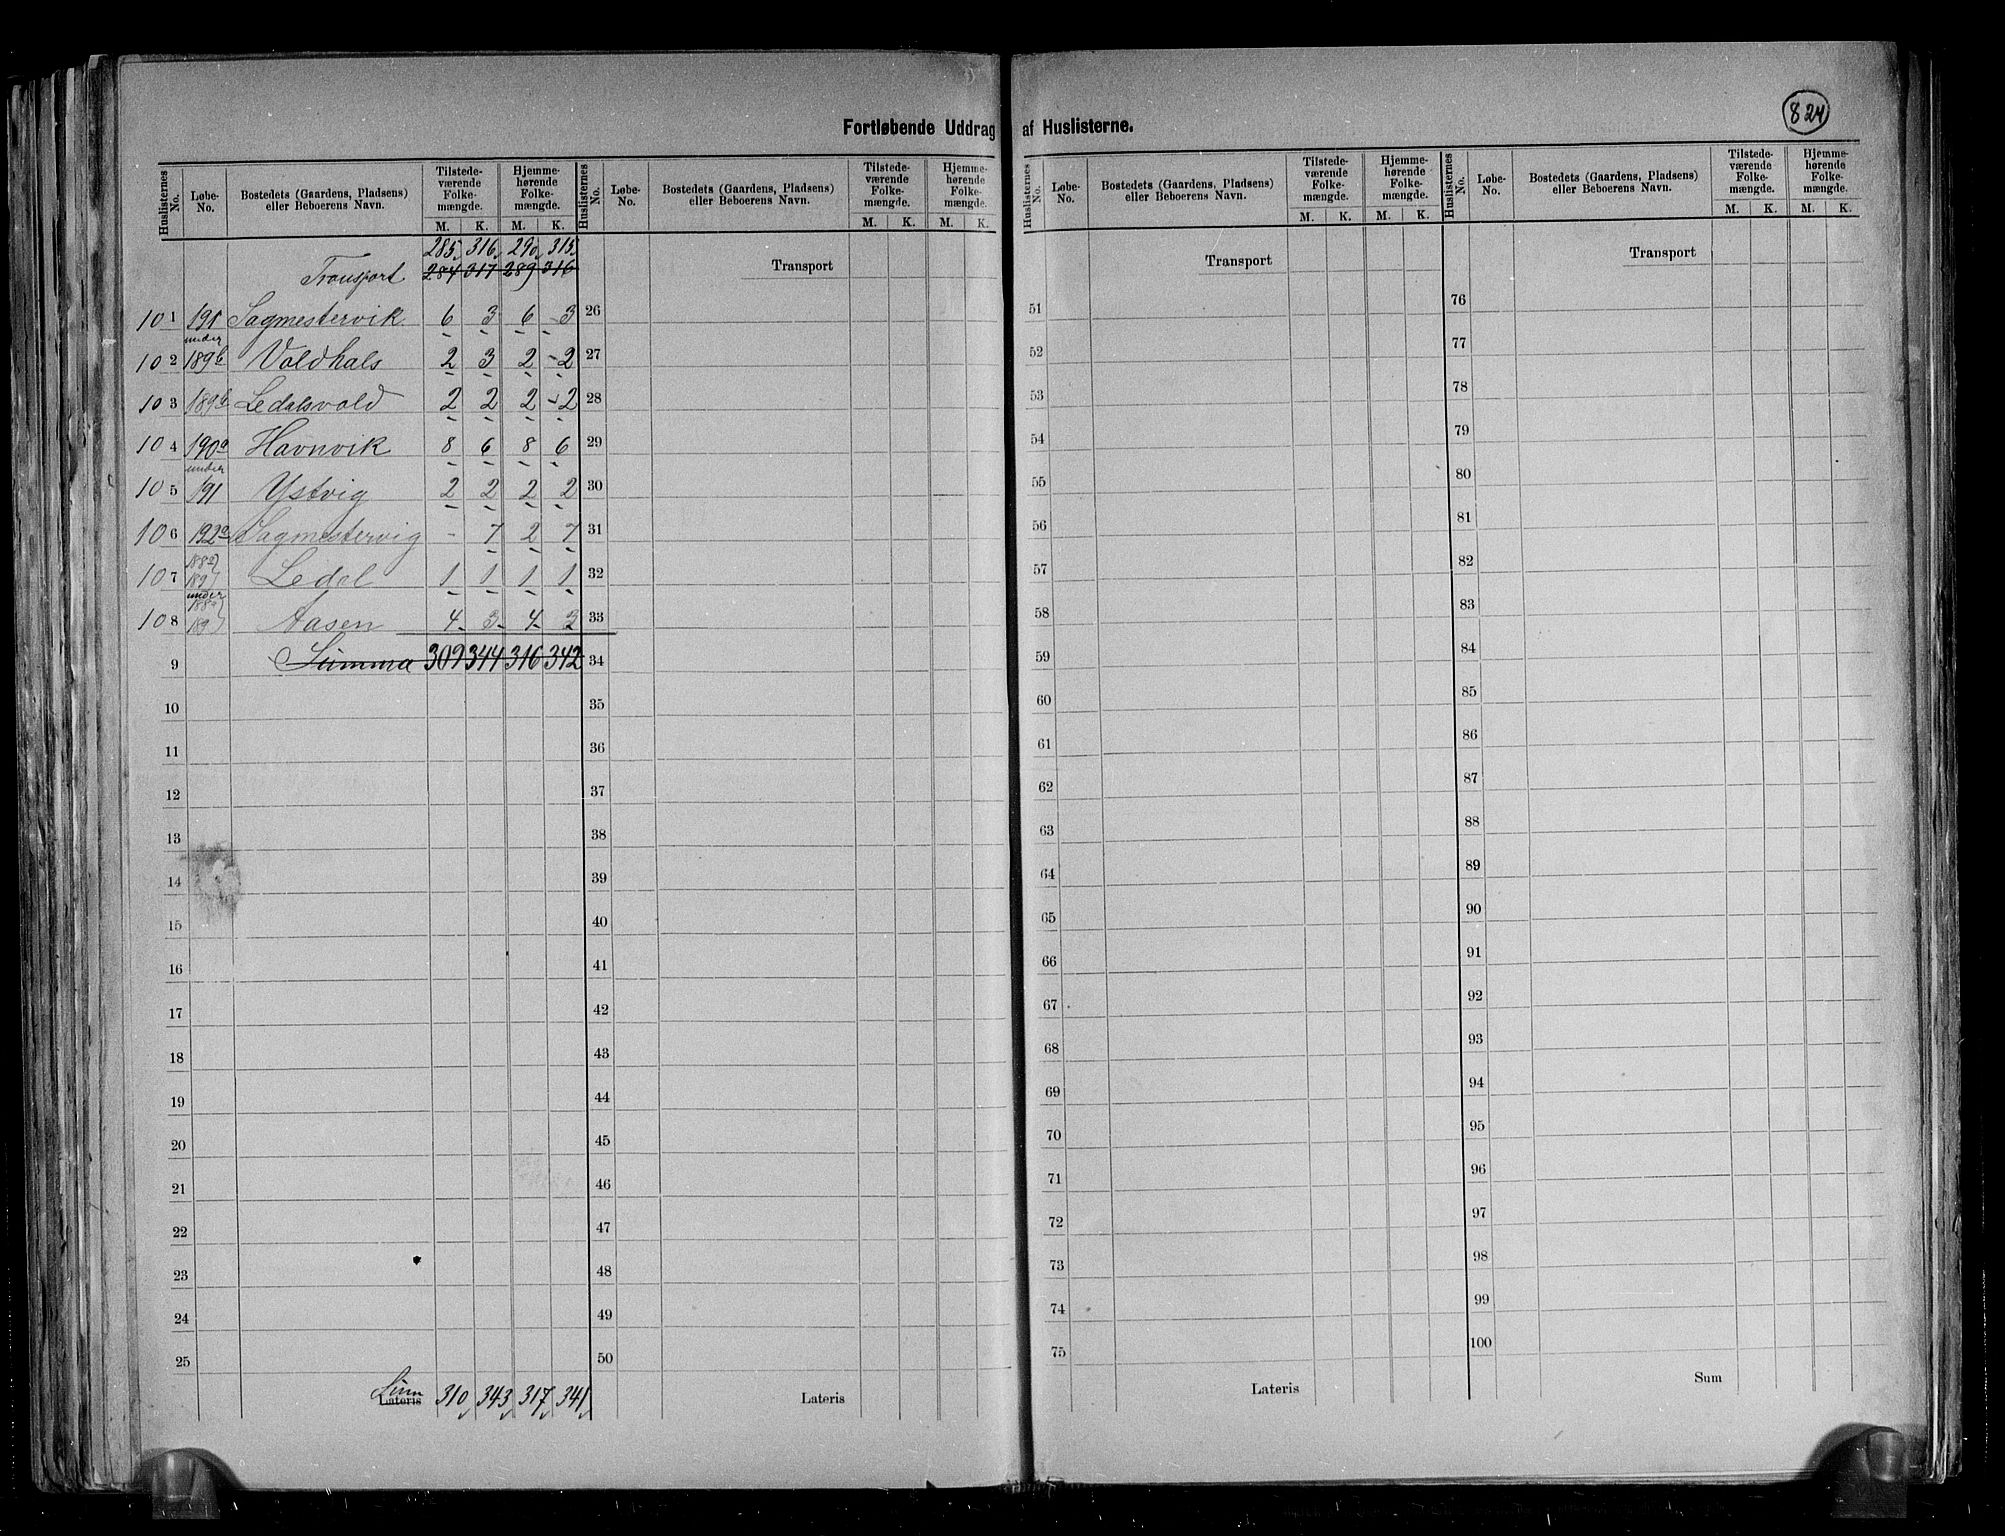 824
Fortløbende Uddrag af Huslisterne.
Huslisternes No. Løbe-No. Bostedets (Gaardens, Pladsens) eller Beboerens Navn. Tilstede-værende Folke-mængde. M. K. Hjemme-hørende Folke-mængde. M. K.
Huslisternes No. Løbe-No. Bostedets (Gaardens, Pladsens) eller Beboerens Navn. Tilstede-værende Folke-mængde. M. K. Hjemme-hørende Folke-mængde. M. K.
Huslisternes No. Løbe-No. Bostedets (Gaardens, Pladsens) eller Beboerens Navn. Tilstede-værende Folke-mængde. M. K. Hjemme-hørende Folke-mængde. M. K.
Huslisternes No. Løbe-No. Bostedets (Gaardens, Pladsens) eller Beboerens Navn. Tilstede-værende Folke-mængde. M. K. Hjemme-hørende Folke-mængde. M. K.
285 316 290 315
Transport 284 317 289 316
101 191 Sagmestervik 6 3 6 3
under
102 189b Voldhals 2 3 2 2
103 189b Ledalsvold 2 2 2 2
104 190a Havnvik 8 6 8 6
under
105 191 Ystvig 2 2 2 2
106 192a Sagmestervig - 7 2 7
188a
107 189 Ledal 1 1 1 1
under
188a
108 189 Aasen 4 3 4 3
9 Summa 309 344 316 342
10
11
12
13
14
15
16
17
18
19
20
21
22
23
24
25
Sum
Lateris 310 343 317 341
Transport
26
27
28
29
30
31
32
33
34
35
36
37
38
39
40
41
42
43
44
45
46
47
48
49
50
Lateris
Transport
51
52
53
54
55
56
57
58
59
60
61
62
63
64
65
66
67
68
69
70
71
72
73
74
75
Lateris
Transport
76
77
78
79
80
81
82
83
84
85
86
87
88
89
90
91
92
93
94
95
96
97
98
99
100
Sum